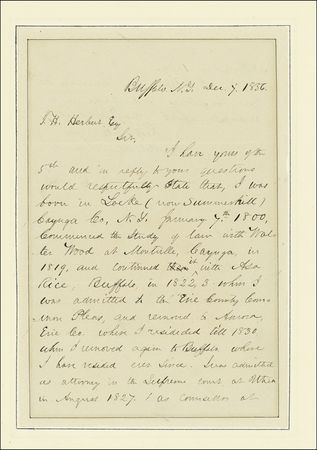 Buffalo, N.Y. Dec. 7. 1856.
J. H. Herbert Esq
Sir,
I have yours of the
5th and in reply to your questions
would respectfully state that, I was
born in Locke (now Summerhill)
Cayuga Co, N.Y. January 7th 1800,
Commenced the Study of law with Wal-
ter Wood at Montville, Cayuga, in
1819, and continued it with Asa
Rice, Buffalo, in 1822, 3 when I
was admitted to the Erie County Com-
mon Pleas, and removed to Aurora,
Erie Co. where I resideded till 1830
when I removed again to Buffalo where
I have resided ever since. I was admitted
as attorney in the Supreme court at Utica
in August 1827. & as Counsellor at